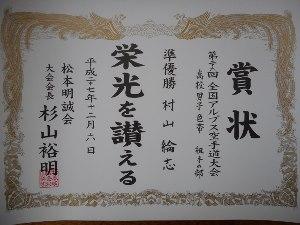 賞状
全国アルプス空手道大会
高校男子色帯 組手の部
準優勝 村山 綸志
栄光を讃える
平成二十七年十二月六日
松本明誠会
大会会長 杉山裕明